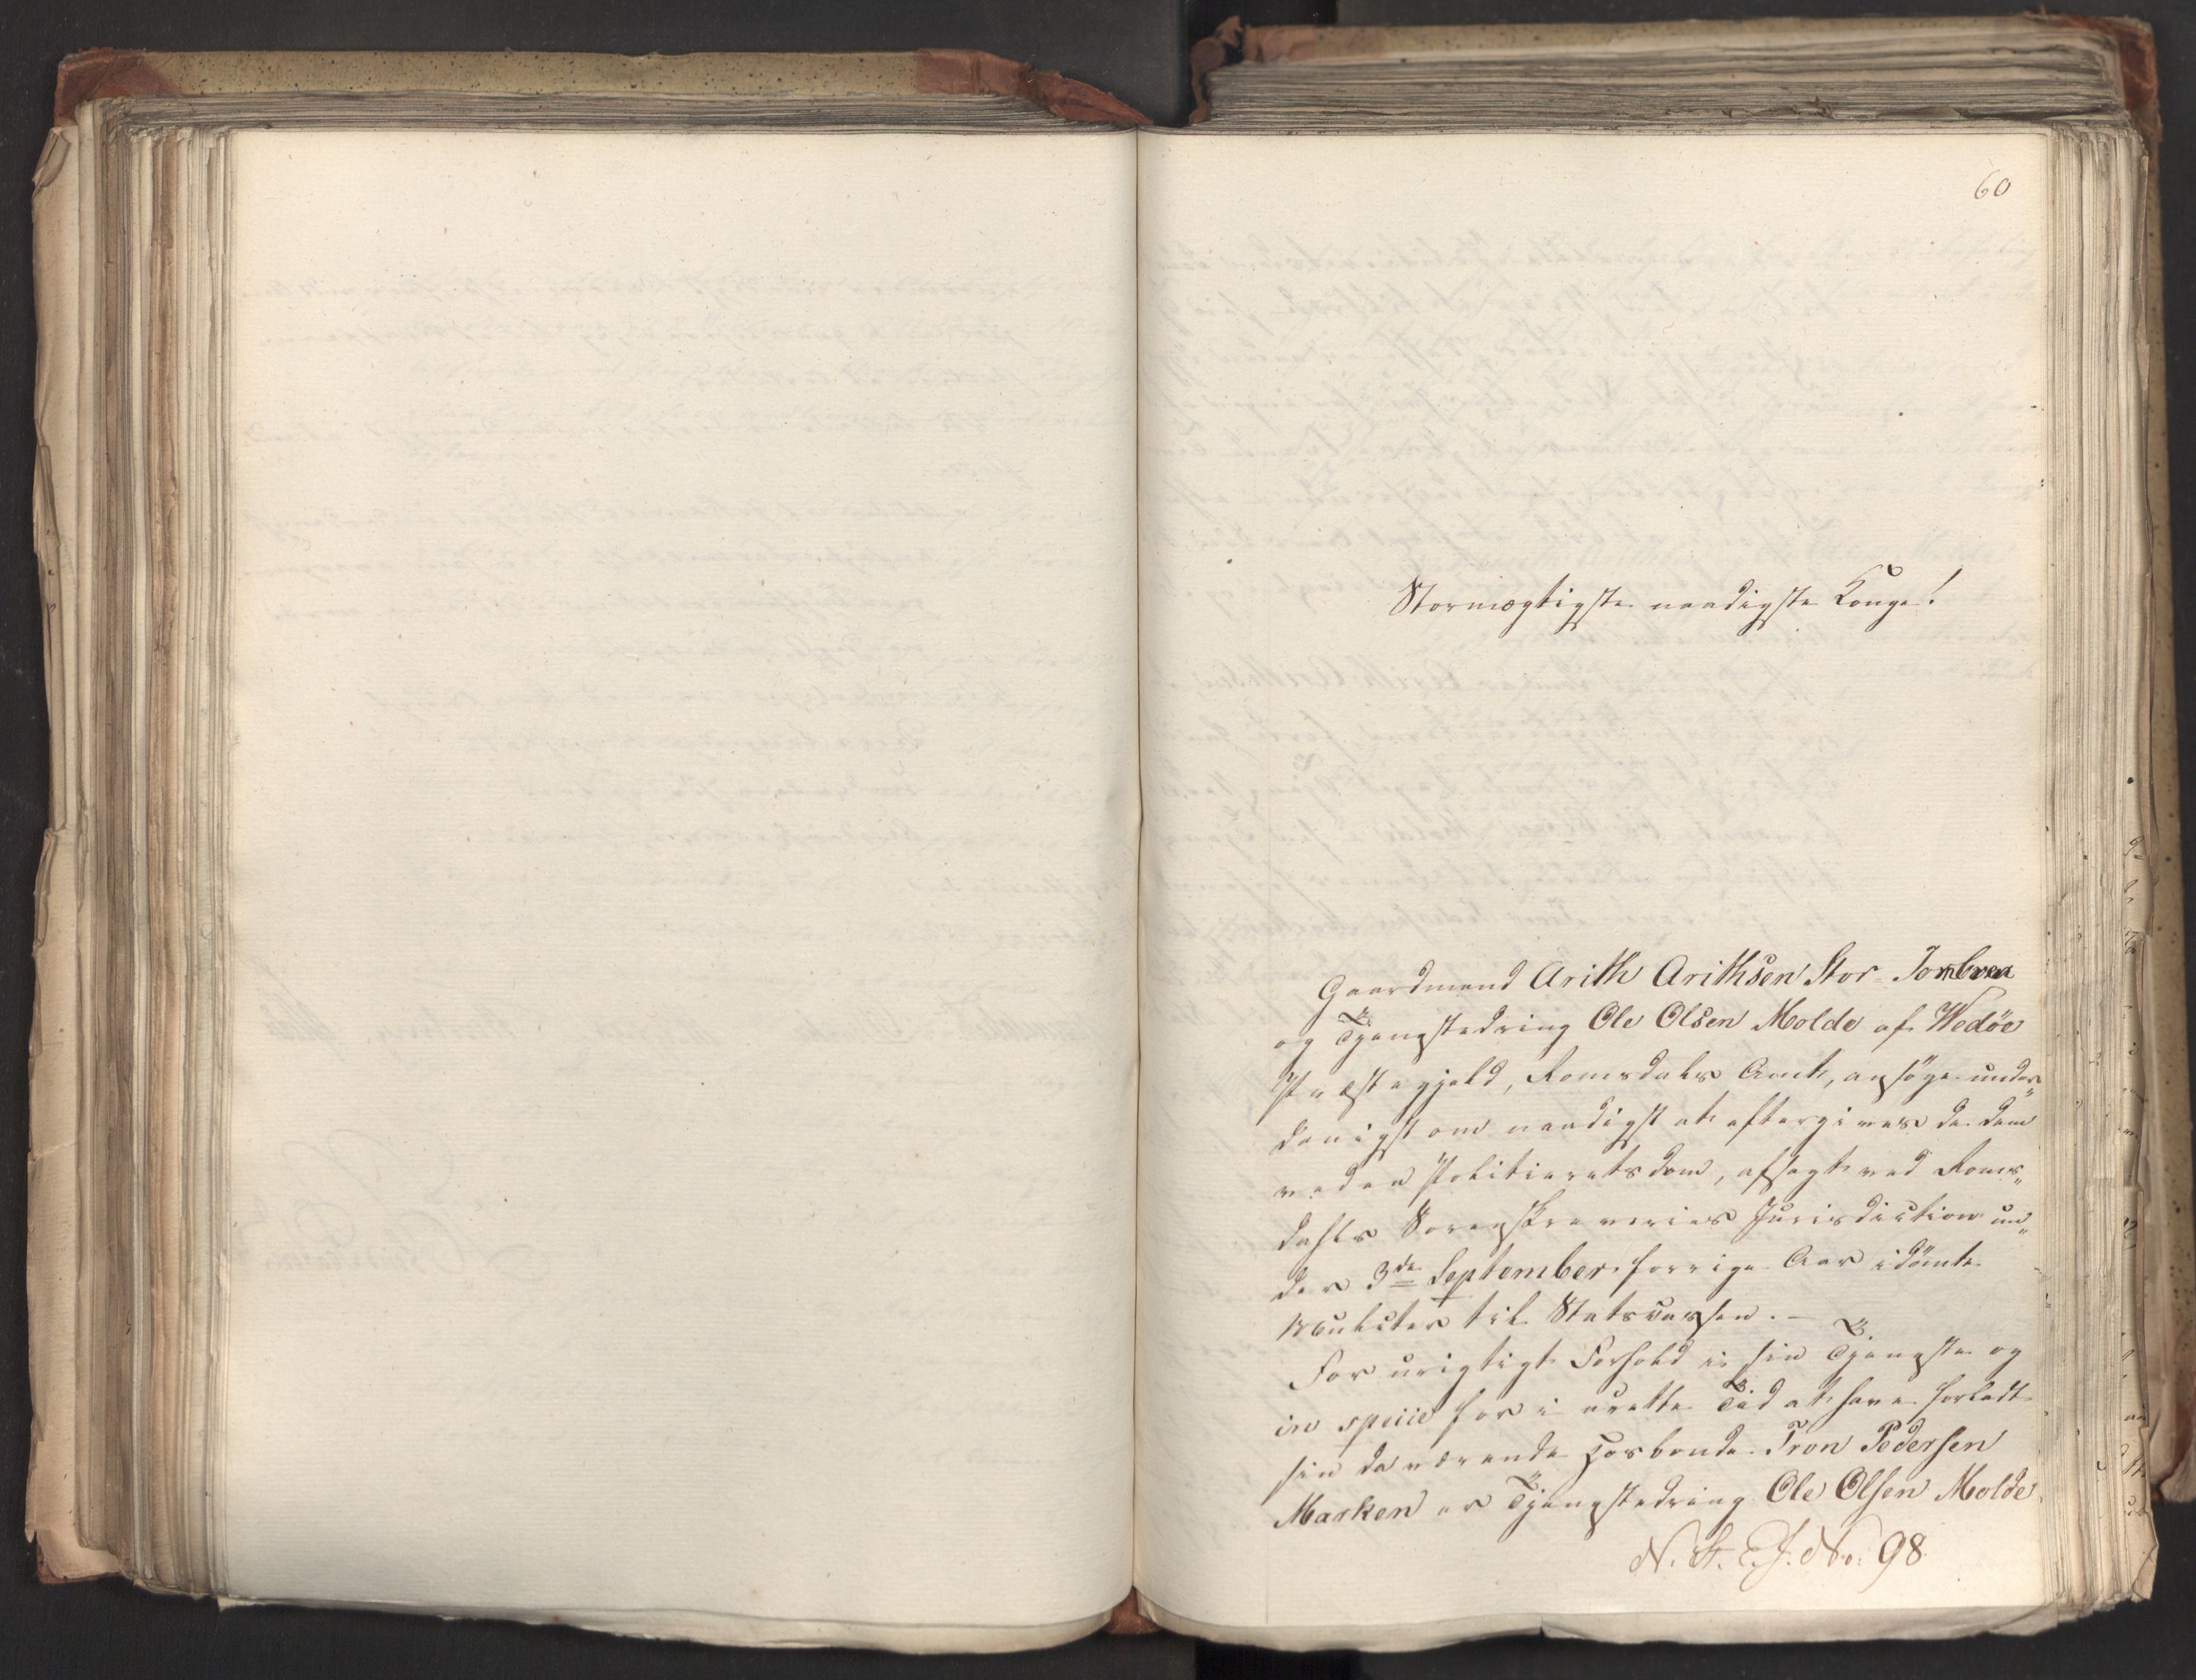 60
Stormægtigste naadigste Konge!
Gaardmand Arith Arithsen Stor
og Tjenestedreng Ole Olsen Molde af Wedøe
Præstegjeld, Romsdals Amt, ansøge under„
danigst om naadigst at eftergives de dem
ved en Politieretsdom, afsagt ved Roms„
dahls Sorenskriveries Jurisdiction un„
der 3de September forrige Aar idømte
Mulcter til Statscassen. –
For urigtigt Forhold i sin Tjeneste og
in specie for i urette Tid at have forladt
sin daværende Hosbonde Tron Pedersen
Marken er Tjenestedreng Ole Olsen Molde
N. St. E. J. No. 98